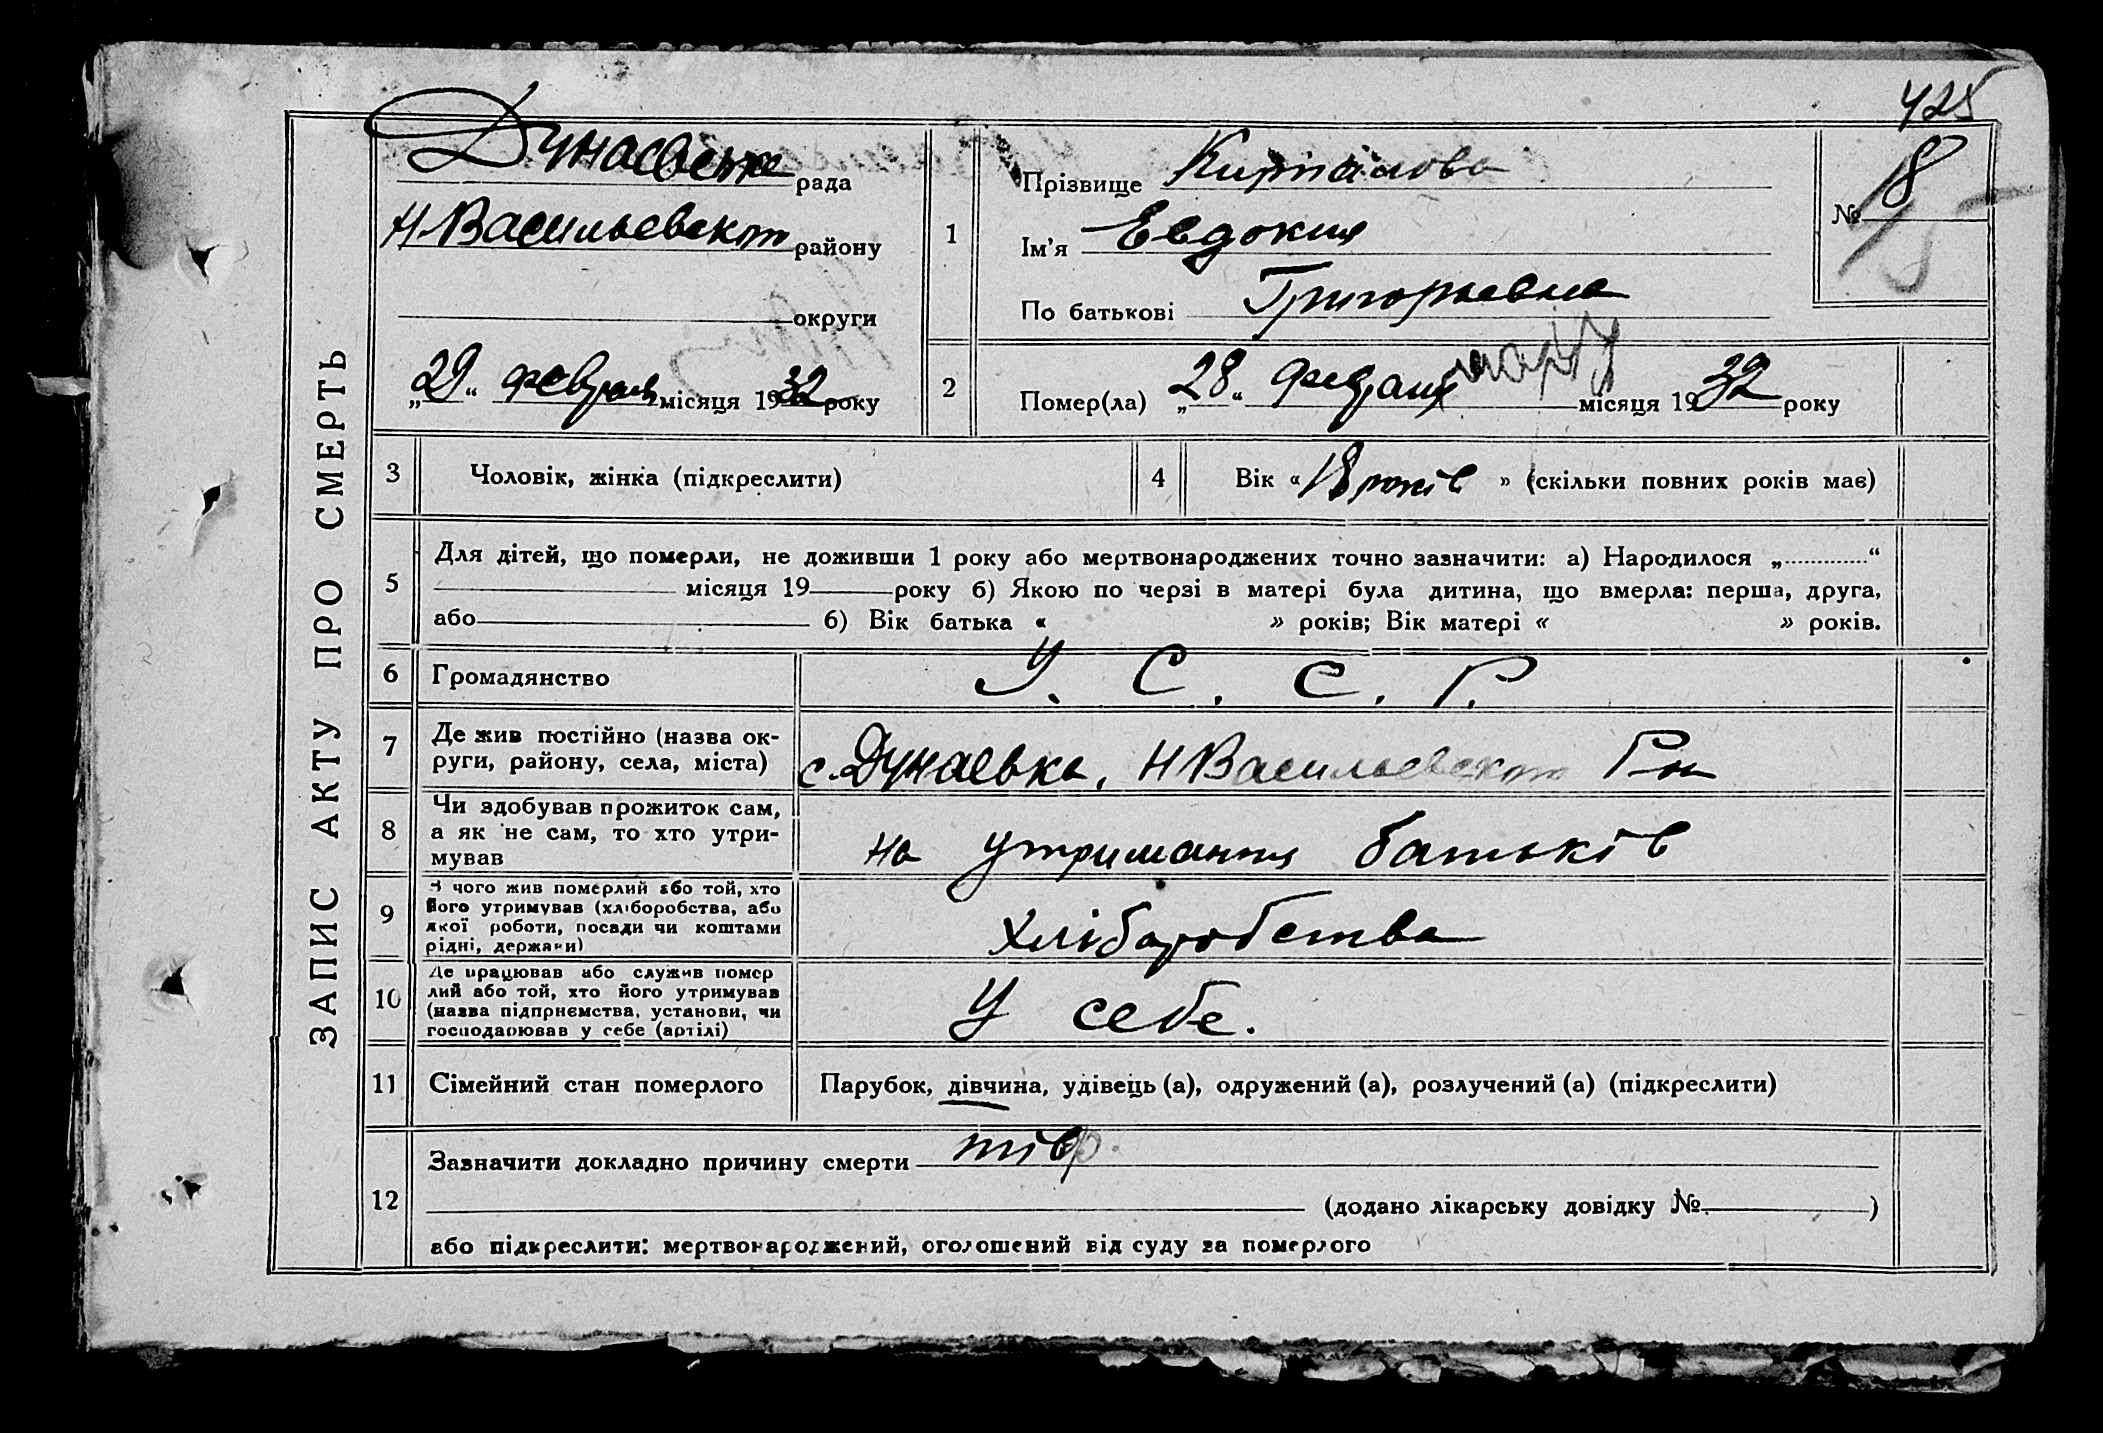 425
ЗАПИС АКТУ ПРО СМЕРТЬ
Дунаевске рада
Н Васильевском району
округи
„29“ февраля місяця 1932 року
1
Прізвище
Ім'я Евдокия
По батькові Григорьевна
№ 18
15
2
Помер(ла) „28“ февраля марту місяця 1932 року
3
Чоловік, жінка (підкреслити)
4
Вік «18 років» (скільки повних років має)
5
Для дітей, що померли, не доживши 1 року або мертвонароджених точно зазначити: а) Народилося „ “
місяця 19 року б) Якою по черзі в матері була дитина, що вмерла: перша, друга,
або б) Вік батька « » років; Вік матері « » років.
6
Громадянство
У. С. С. Р.
7
Де жив постійно (назва ок-
руги, району, села, міста)
с. Дунаевка, Н Васильевском Р-н
8
Чи здобував прожиток сам,
а як не сам, то хто утри-
мував
на утримання батьків
9
З чого жив померлий або той, хто
його утримував (хліборобства, або
якої роботи, посади чи коштами
рідні, держави)
хліборобства
10
Де працював або служив помер
лий або той, хто його утримував
(назва підприємства, установи, чи
господарював у себе (артілі)
У себе.
11
Сімейний стан померлого
Парубок, дівчина, удівець (а), одружений (а), розлучений (а) (підкреслити)
12
Зазначити докладно причину смерти
(додано лікарську довідку № )
або підкреслити: мертвонароджений, оголошений від суду за померлого